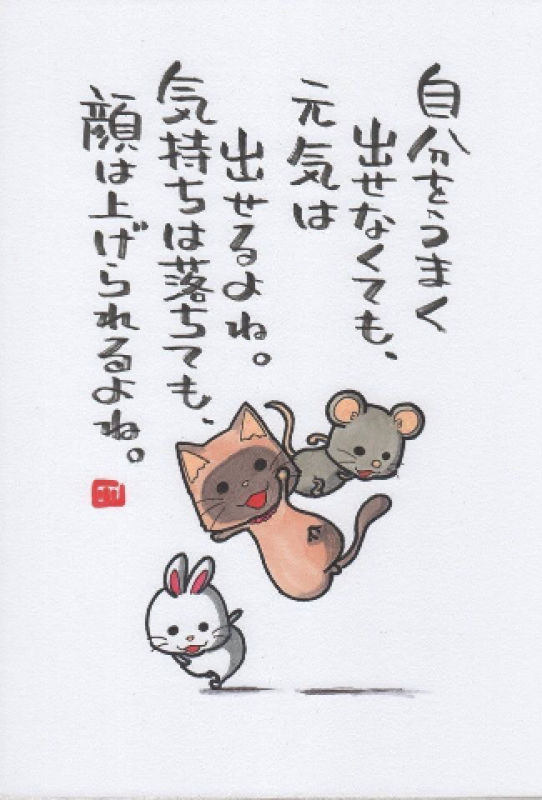 自分をうまく
出せなくても、
元気は
出せるよね。
気持ちは落ちても、
顔は上げられるよね。